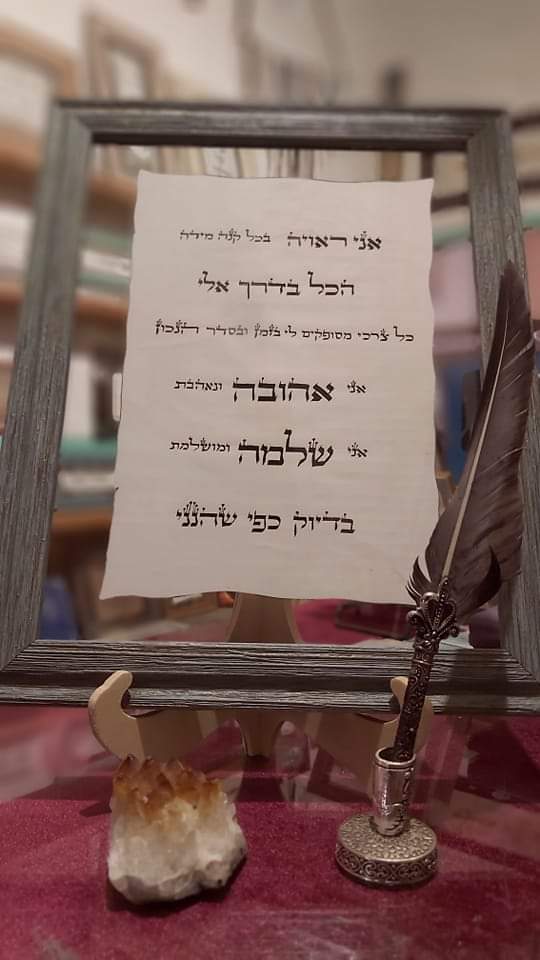 אני ראויה בכל קנה מידה
הכל בדרך אלי
כל צרכי מסופקים לי בזמן ובסדר הנכון
אני אהובה ונאהבת
אני שלמה ומושלמת
בדיוק כפי שהנני